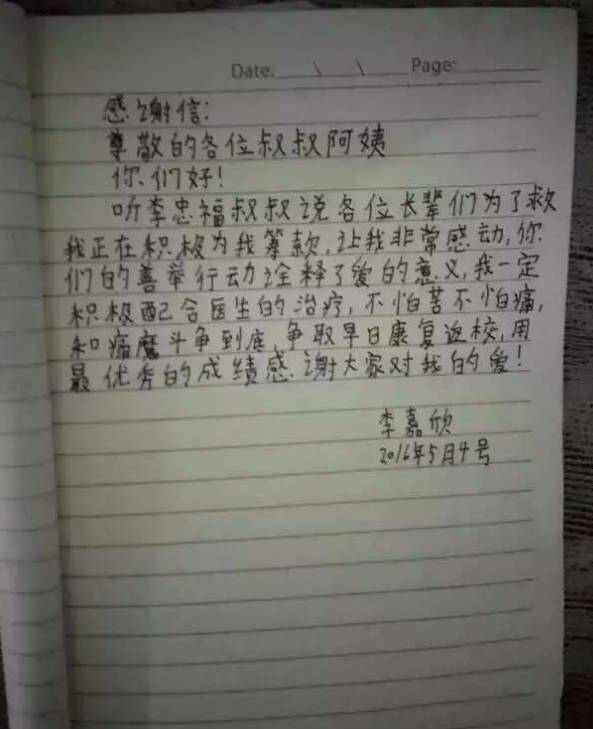 Date: \ \ Page:
感谢信:
尊敬的各位叔叔阿姨
你们好!
听李忠福叔叔说各位长辈们为了救
我正在积极为我筹款,让我非常感动,你
们的善举行动诠释了爱的意义,我一定
积极配合医生的治疗,不怕苦不怕痛,
和病魔斗争到底,争取早日康复返校,用
最优秀的成绩感谢大家对我的爱!
李嘉欣
2016年5月4号